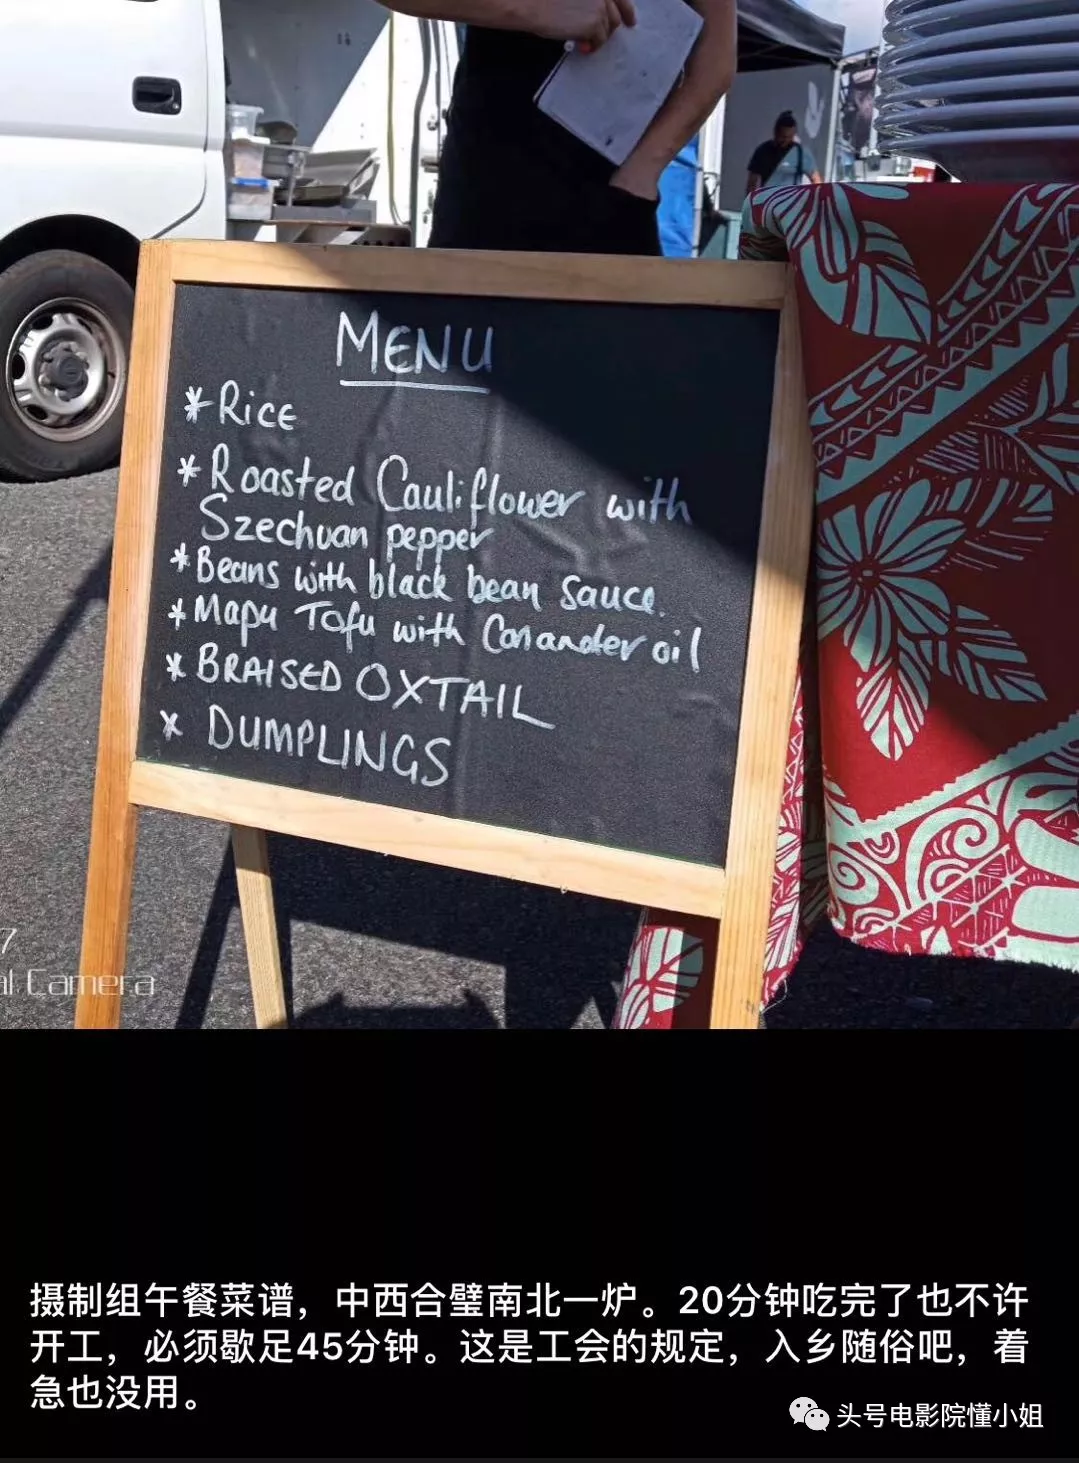 MENU
* Rice
* Roasted Cauliflower with
Szechuan pepper
* Beans with black bean sauce.
* Mapu Tofu with Coriander oil
* BRAISED OXTAIL
* DUMPLINGS
7
al Camera
摄制组午餐菜谱，中西合璧南北一炉。20分钟吃完了也不许
开工，必须歇足45分钟。这是工会的规定，入乡随俗吧，着
急也没用。
头号电影院懂小姐